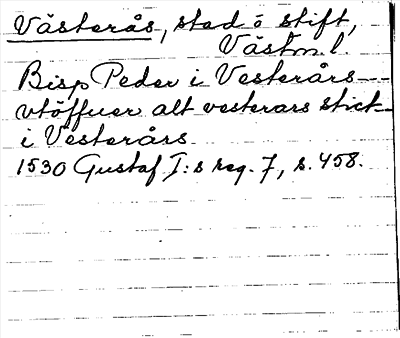 Västerås, stad o stift,
Västm. l.
Bisp Peder i Vesterårs --
vtöffuer alt vesterars stict
i Vesterårs
1530 Gustaf I:s reg. 7, s. 458.